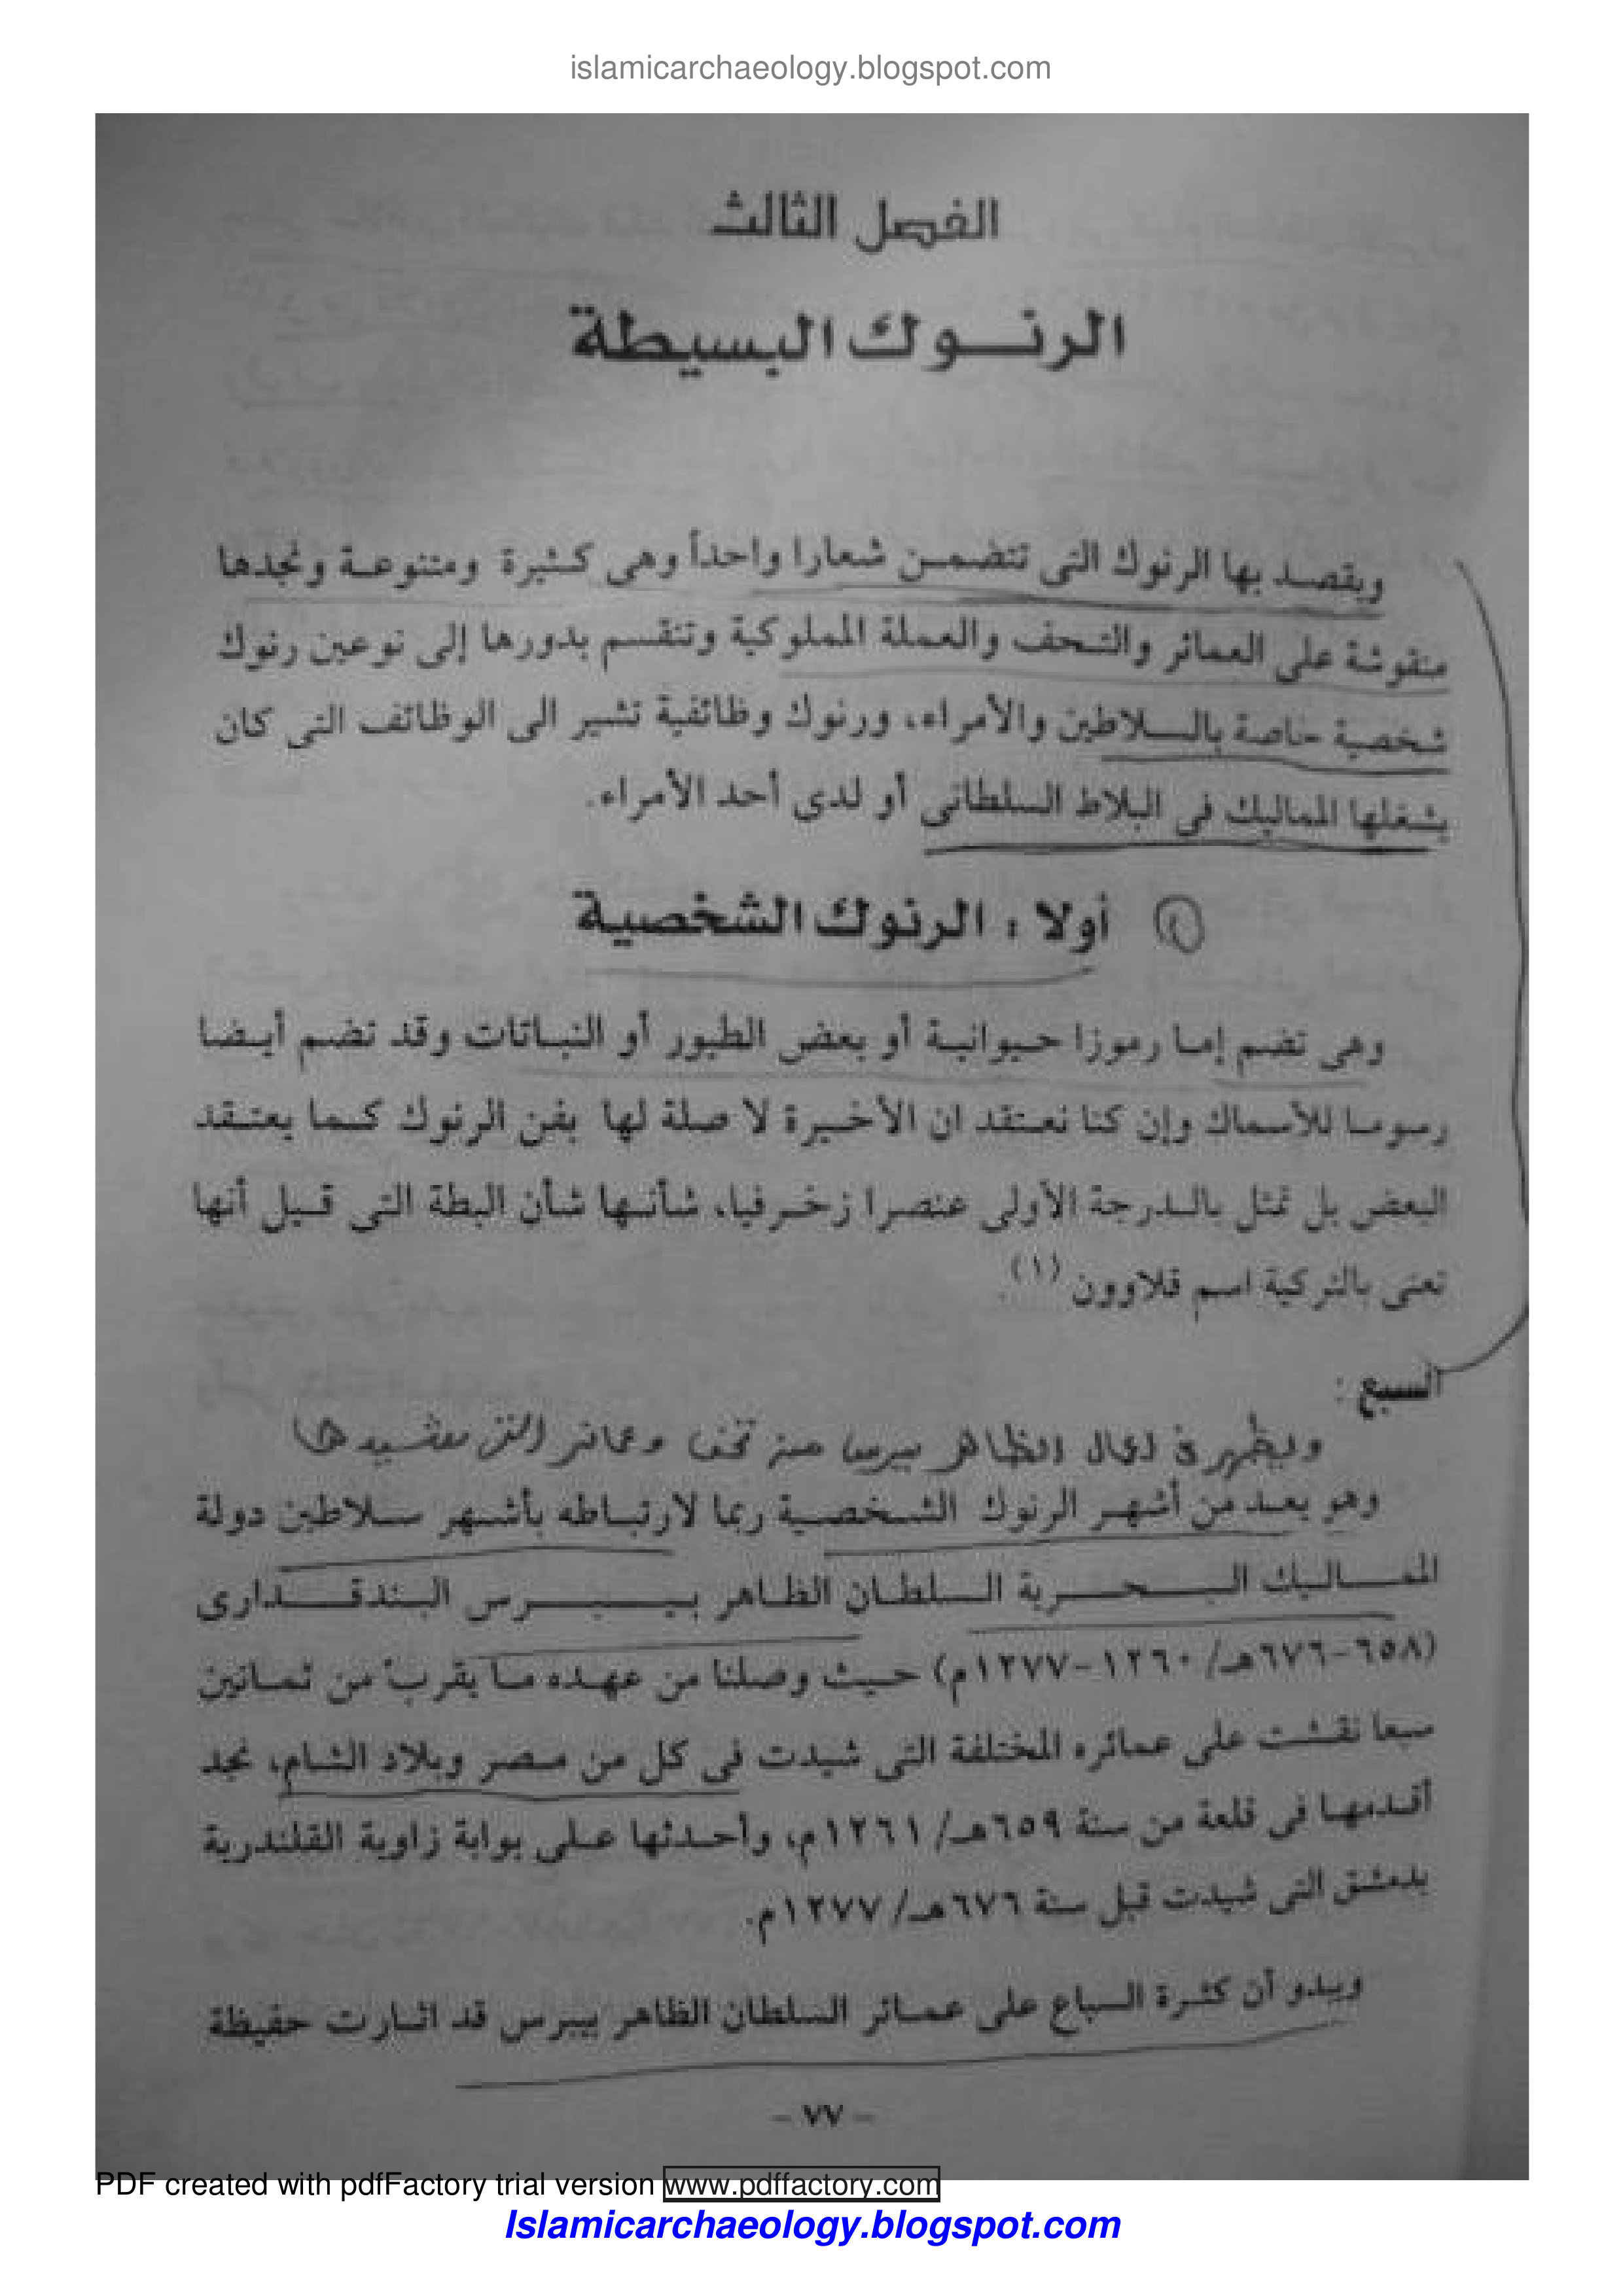 islamicarchaeology.blogspot.com
الفصل الثالث
الرنوك البسيطة
ويقصد بها الرنوك التى تتضمن شعارا واحداً وهى كثيرة ومتنوعة ونجدها
منقوشة على العمائر والتحف والعملة المملوكية وتنقسم بدورها إلى نوعين رنوك
شخصية خاصة بالسلاطين والأمراء، ورنوك وظائفية تشير الى الوظائف التى كان
يشغلها المماليك فى البلاط السلطانى أو لدى أحد الأمراء.
أولا : الرنوك الشخصية
وهى تضم إما رموزا حيوانية أو بعض الطيور أو النباتات وقد تضم أيضا
رسوما للأسماك وإن كنا نعتقد ان الأخيرة لا صلة لها بفن الرنوك كما يعتقد
البعض بل تمثل بالدرجة الأولى عنصرا زخرفيا، شأنها شأن البطة التى قيل أنها
تعنى بالتركية اسم قلاوون (١).
السبع :
الظاهر بيبرس تحف وعمائر
وهو يعد من أشهر الرنوك الشخصية ربما لارتباطه بأشهر سلاطين دولة
المماليك البحرية السلطان الظاهر بيبرس البندقدارى
(٦٥٨-٦٧٦هـ/ ١٢٦٠-١٢٧٧م) حيث وصلنا من عهده ما يقرب من ثمانين
سبعا نقشت على عمائره المختلفة التى شيدت فى كل من مصر وبلاد الشام، نجد
أقدمها فى قلعة من سنة ٦٥٩هـ/ ١٢٦١م، وأحدثها على بوابة زاوية القلندرية
بدمشق التى شيدت قبل سنة ٦٧٦هـ/ ١٢٧٧م.
ويبدو أن كثرة السباع على عمائر السلطان الظاهر بيبرس قد اثارت حفيظة
- ٧٧ -
PDF created with pdfFactory trial version www.pdffactory.com
Islamicarchaeology.blogspot.com